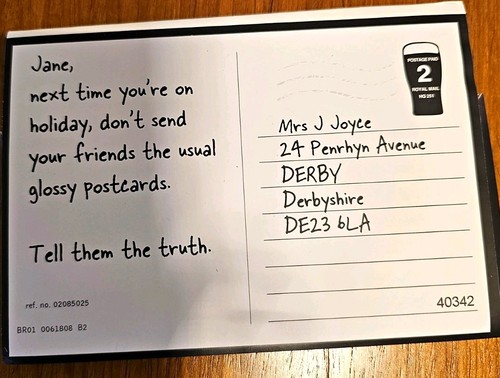 Jane,
next time you're on
holiday, don't send
your friends the usual
glossy postcards.
Tell them the truth.
ref. no. 02085025
BR01 0061808 B2
POSTAGE PAID
2
ROYAL MAIL
Mrs J Joyce
24 Penrhyn Avenue
DERBY
Derbyshire
DE23 6LA
40342